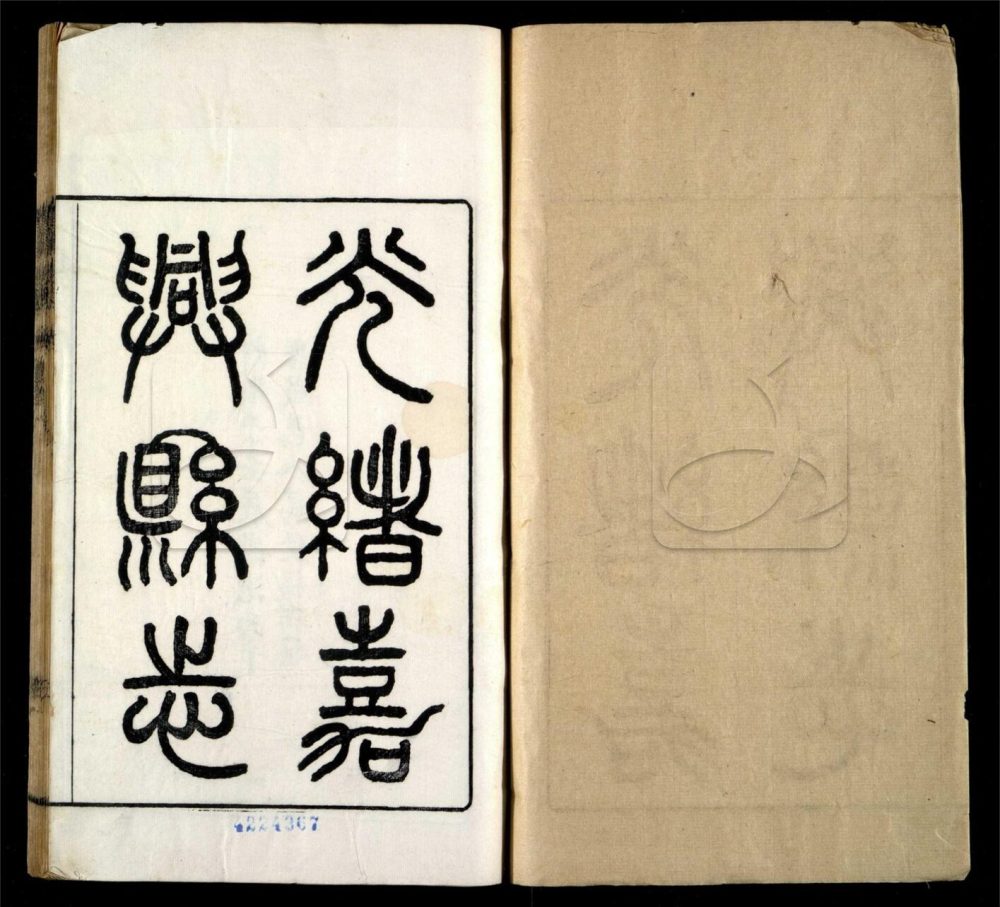 光緒嘉
興縣志
4224367